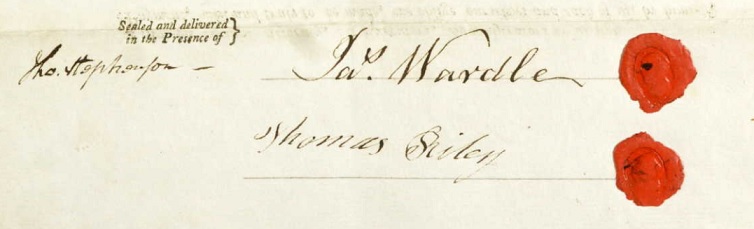 Sealed and delivered
in the Presence of
Tho. Stephenson —
Jas. Wardle
Thomas Briley